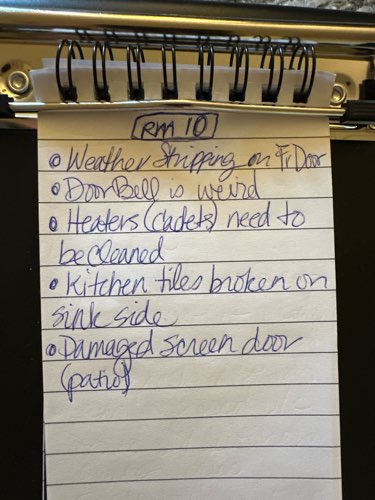 Rm 10
• Weather Stripping on Fr Door
• Door Bell is weird
• Heaters (cadets) need to
be cleaned
• Kitchen tiles broken on
sink side
• Damaged screen door
(patio)